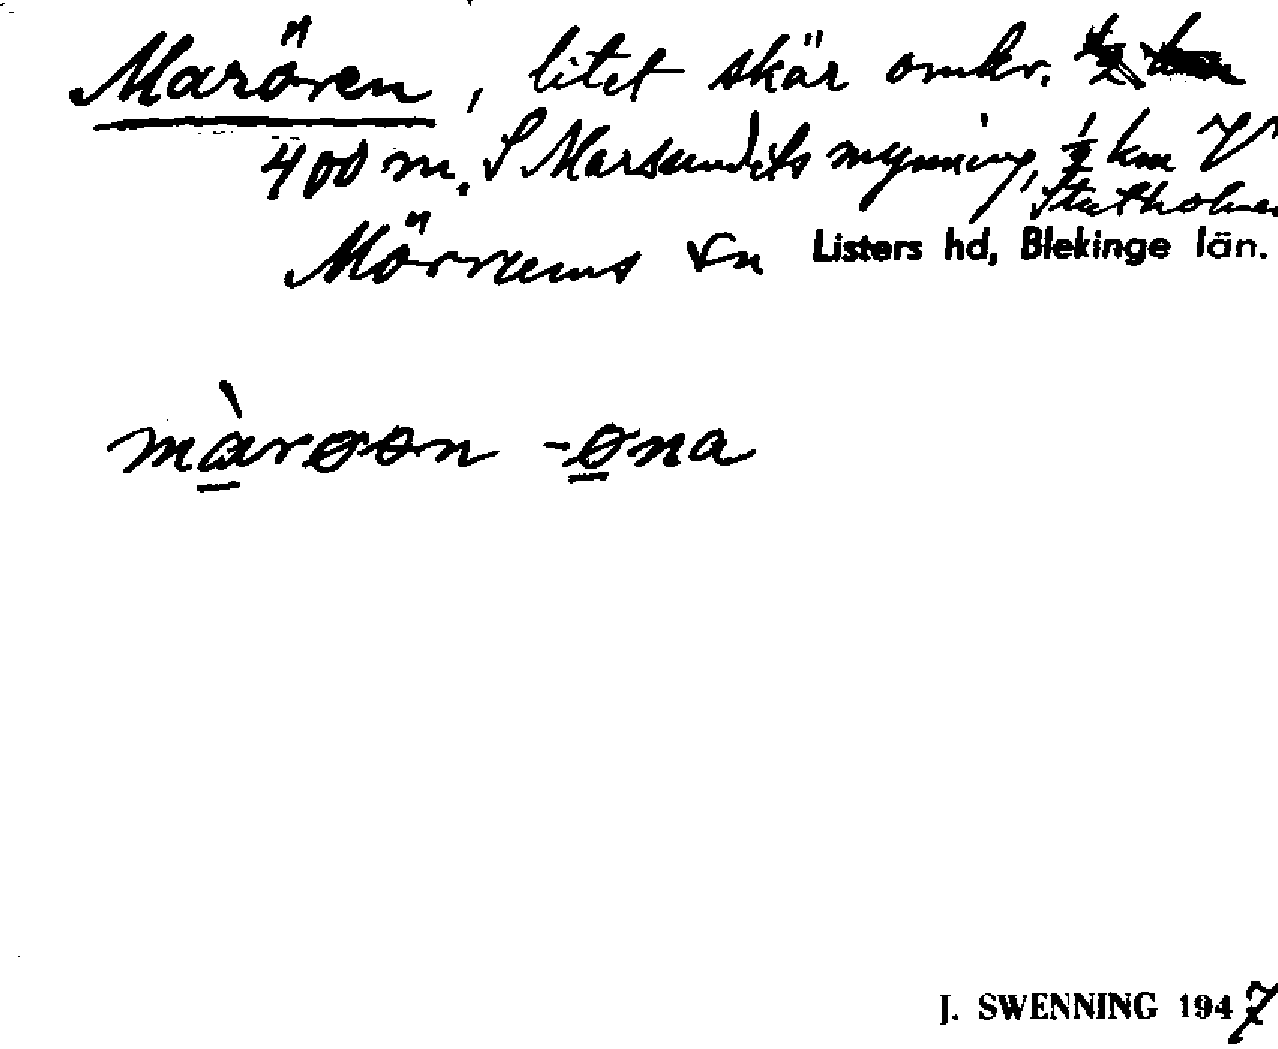 Marören, litet skär omkr.
400 m. S Marsundets mynning, ½ km V
Mörrums sn Listers hd, Blekinge län.
màrøon -øna
J. SWENNING 1947